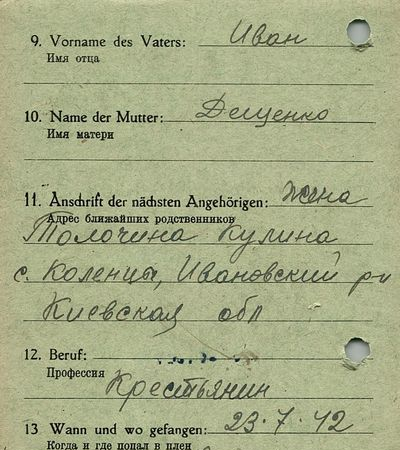 9. Vorname des Vaters: Иван
Имя отца
10. Name der Mutter: Дещенко
Имя матери
11. Anschrift der nächsten Angehörigen: жена
Адрес ближайших родственников
Толочина Кулина
с. Коленцы, Ивановский р-н
Киевская обл
12. Beruf:
Профессия
Крестьянин
13 Wann und wo gefangen: 23.7.42
Когда и где попал в плен